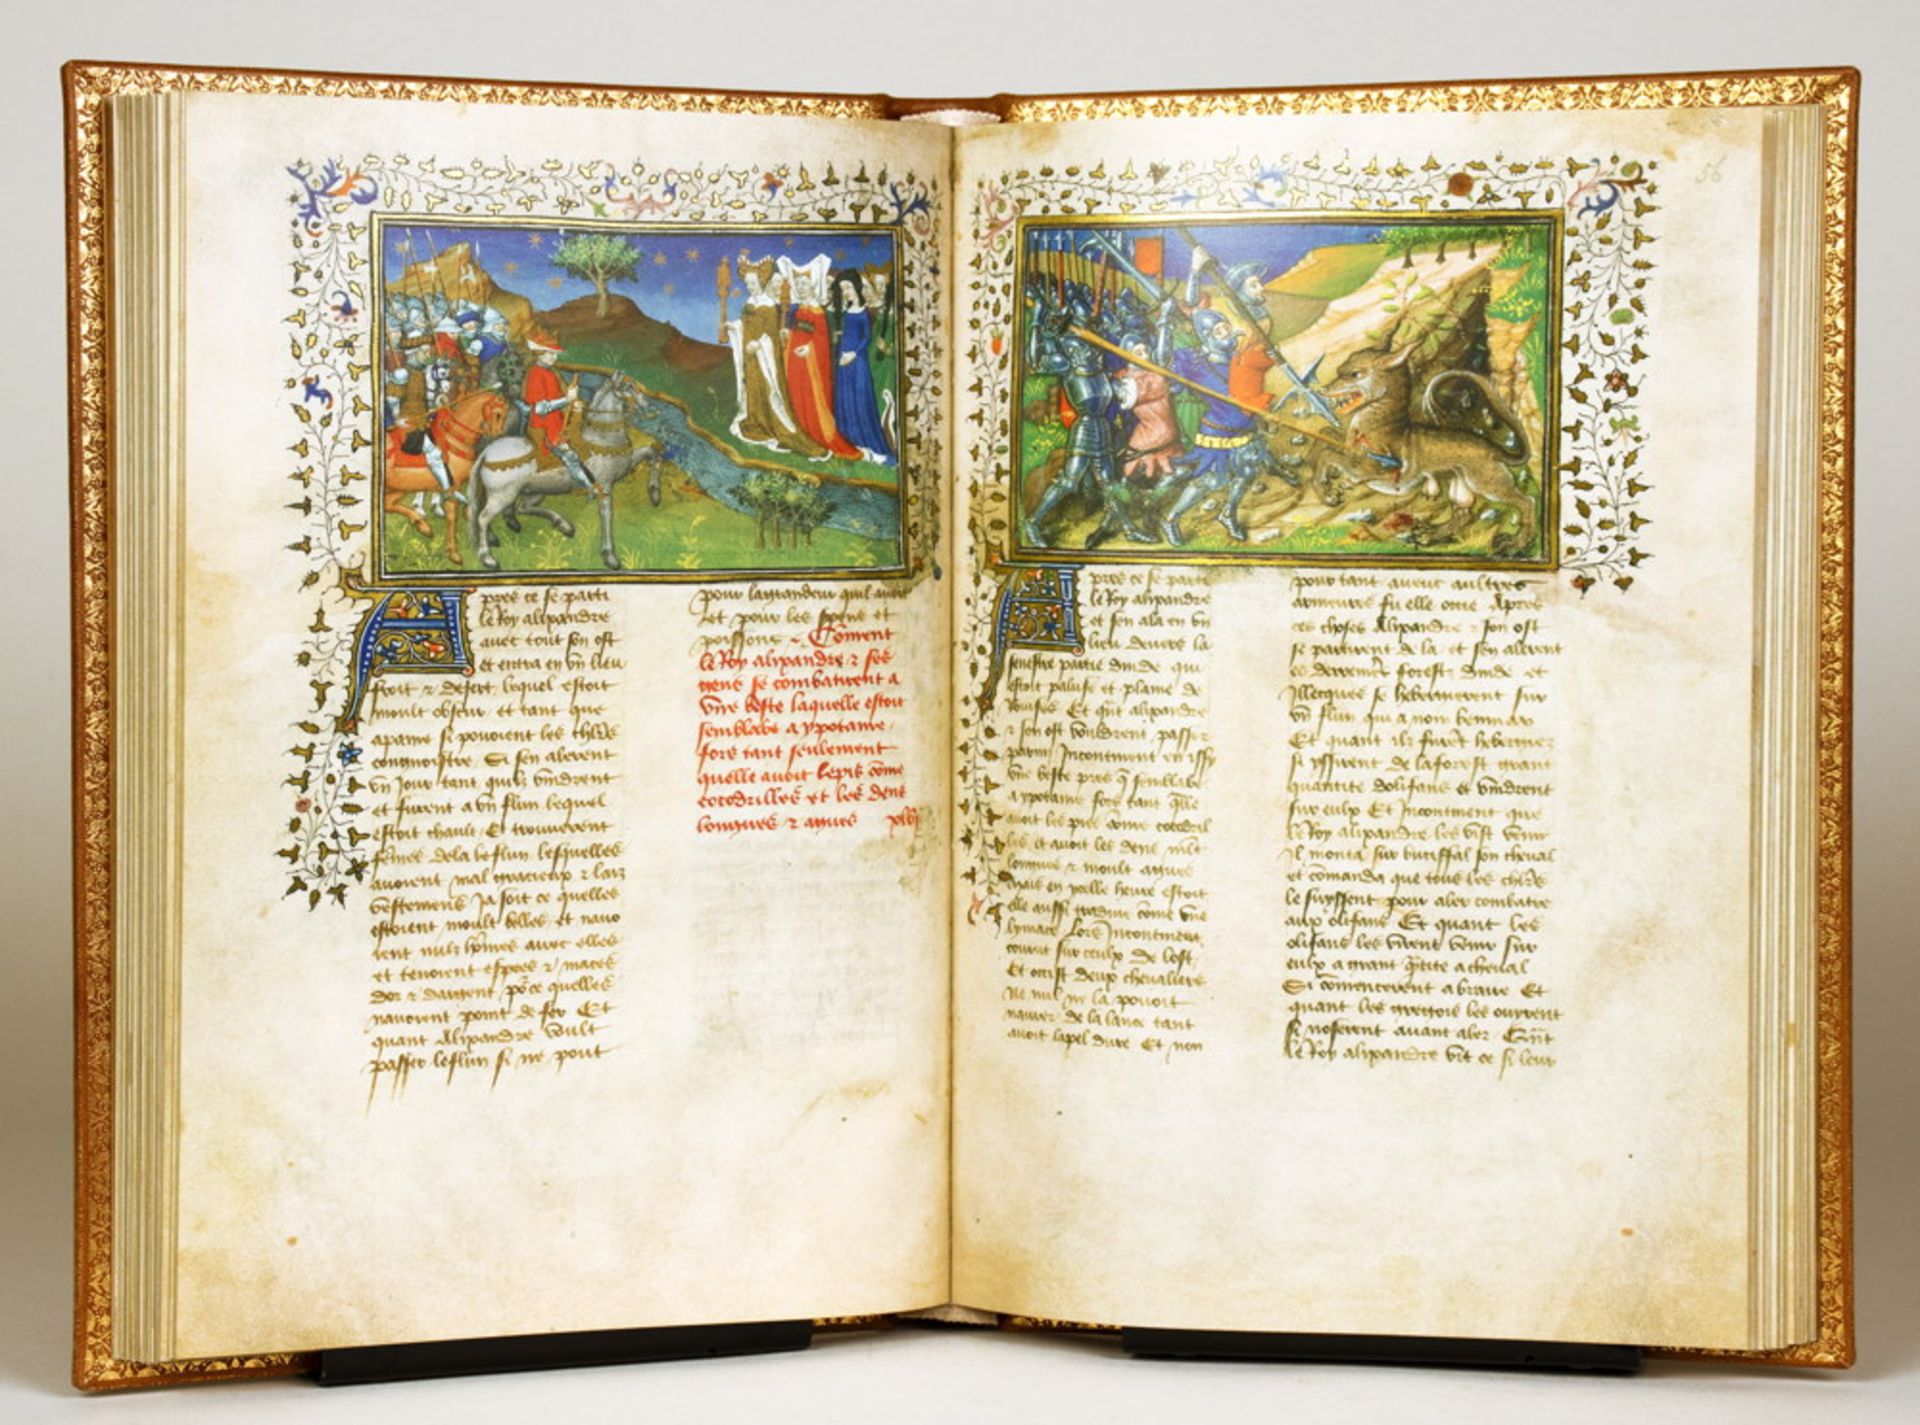 Apres ce se parti
le Roy alixandre
avec tout son ost
et entra en vn lieu
froit & desert lequel estoit
moult obscur et tant que
apaine si povoient les chlrs
congnoistre Si sen alerent
vn Jour tant quilz vindrent
et furent a vn flun lequel
estoit chault Et trouverent
fēmes dela leflun lesquelles
avoient mal gracieux & laiz
vestemens Ja soit ce quelles
estoient moult belles et navo
ient nulz hōmes avec elles
et tenoient espees & maces
dor & dargent pōce quelles
navoient point de fer Et
quant Alixandre vult
passer leflun si ne pout
pour lagrandeur quil avoit
et pour les
poissons Cōment
le Roy alixandre & ses
gens se combatirent a
vne beste laquelle estoit
semblable a ypotame
fors tant seulement
quelle avoit lepis cōme
cocodrilles et les dens
longues & agues
56
Apres ce se parti
le Roy alixandre
et sen ala en vn
lieu devers la
senestre partie dinde qui
estoit paluse et plaine de
Et qn̄t alixandre
& son ost vouldrent passer
parmi Incontinent en issy
vne beste pres q̄ semblable
a ypotame fors tant q̄lle
avoit les piez come cocodril
les et avoit les dens mlt
longues & moult agues
mais en ycelle heure estoit
elle aussi tardive cōme vne
lymace Lors Incontinent
courut sur ceulx de lost
Et occist deux chevaliers
Ne nul ne la povoit
navrer de la lance tant
avoit lapel dure Et non
pour tant avenc aultres
armeures fu elle occie Apres
ces choses Alixandre & son ost
se partirent de la et sen alerent
es derrenier forest dinde et
Illecques se hebergerent sur
vn flun qui a nom
Et quant ilz furēt hebergiez
si yssirent de laforest grant
quantite dolifans et vindrent
sur eulx Et Incontinent que
le Roy alixandre les vist venir
Il monta sur bucifal son cheval
et comanda que tous les chlrs
le suyssent pour aler combatre
aux olifans Et quant les
olifans les virent venir sur
eulx a grant q̄ntite a cheval
Si comencerent a braire Et
quant les gregois les ouyrent
si noserent avant aler Qn̄t
le Roy alixandre vit ce si leur